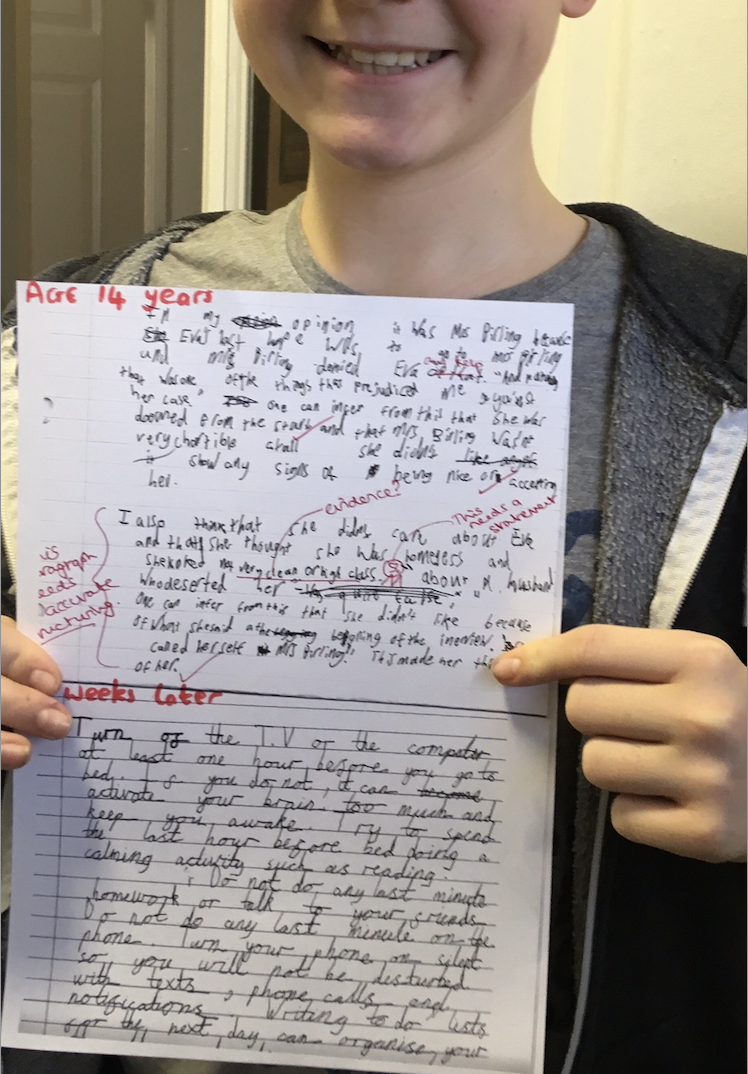 Age 14 years
In my opinion it was Mrs Birling because
Eva's last hope was to go to mrs birling
and Mrs Birling denied Eva
that was one of the things that prejudiced me against
her case" one can infer from this that she was
doomed from the start and that Mrs Birling wasn't
very chartible atall she didn't
show any signs of being nice or accepting
her.
evidence?
This
needs a
statement
I also think that she didn't care about Eva
and that she thought she was homeless and
very clean or high class. about a husband
who deserted her
One can infer from this that she didn't like because
of whons she said begining of the
called herself Mrs Birling" it made her
of her.
is
accurate
weeks later
Turn off the T.V or the computer
at least one hour before you go to
bed. If you do not, it can
activate your brain too much and
keep you awake. Try to spend
the last hour before bed doing a
calming activity such as reading.
Do not do any last minute
homework or talk to your friends
Do not do any last minute on the
phone. Turn your phone on silent
so you will not be disturbed
with texts, phone calls and
notifications. Writing to do lists
for the next day, can organise your